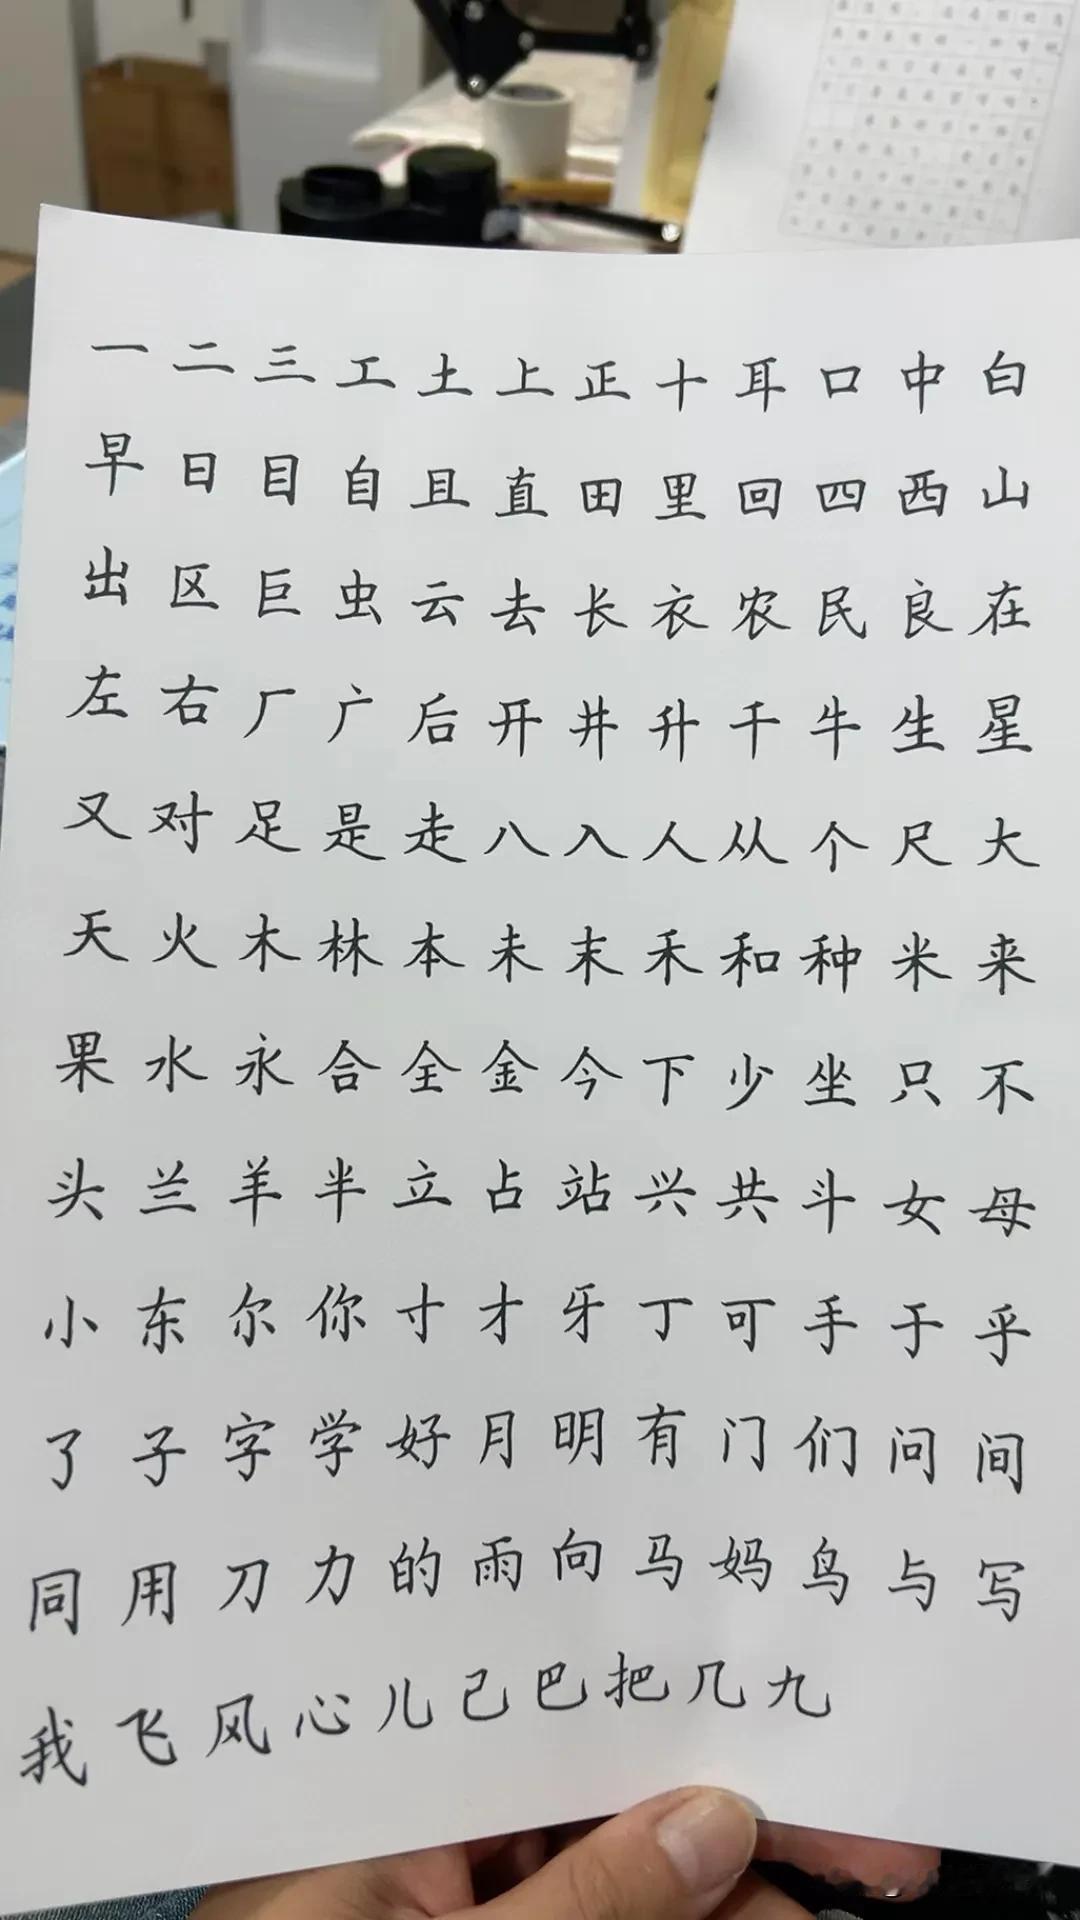 一二三工土上正十耳口中白
早日目自且直田里回四西山
出区巨虫云去长衣农民良在
左右厂广后开井升千牛生星
又对足是走八入人从个尺大
天火木林本未末禾和种米来
果水永合全金今下少坐只不
头兰羊半立占站兴共斗女母
小东尔你寸才牙丁可手于乎
了子字学好月明有门们问间
同用刀力的雨向马妈鸟与写
我飞风心儿己巴把几九